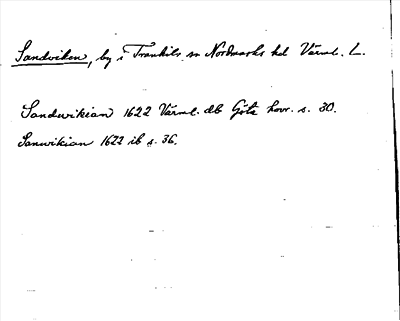 Sandviken, by i Trankils sn Nordmarks hd Värml. L.
Sandwikian 1622 Värml. db Göta hovr. s. 30.
Sanwikian 1622 ib s. 36.